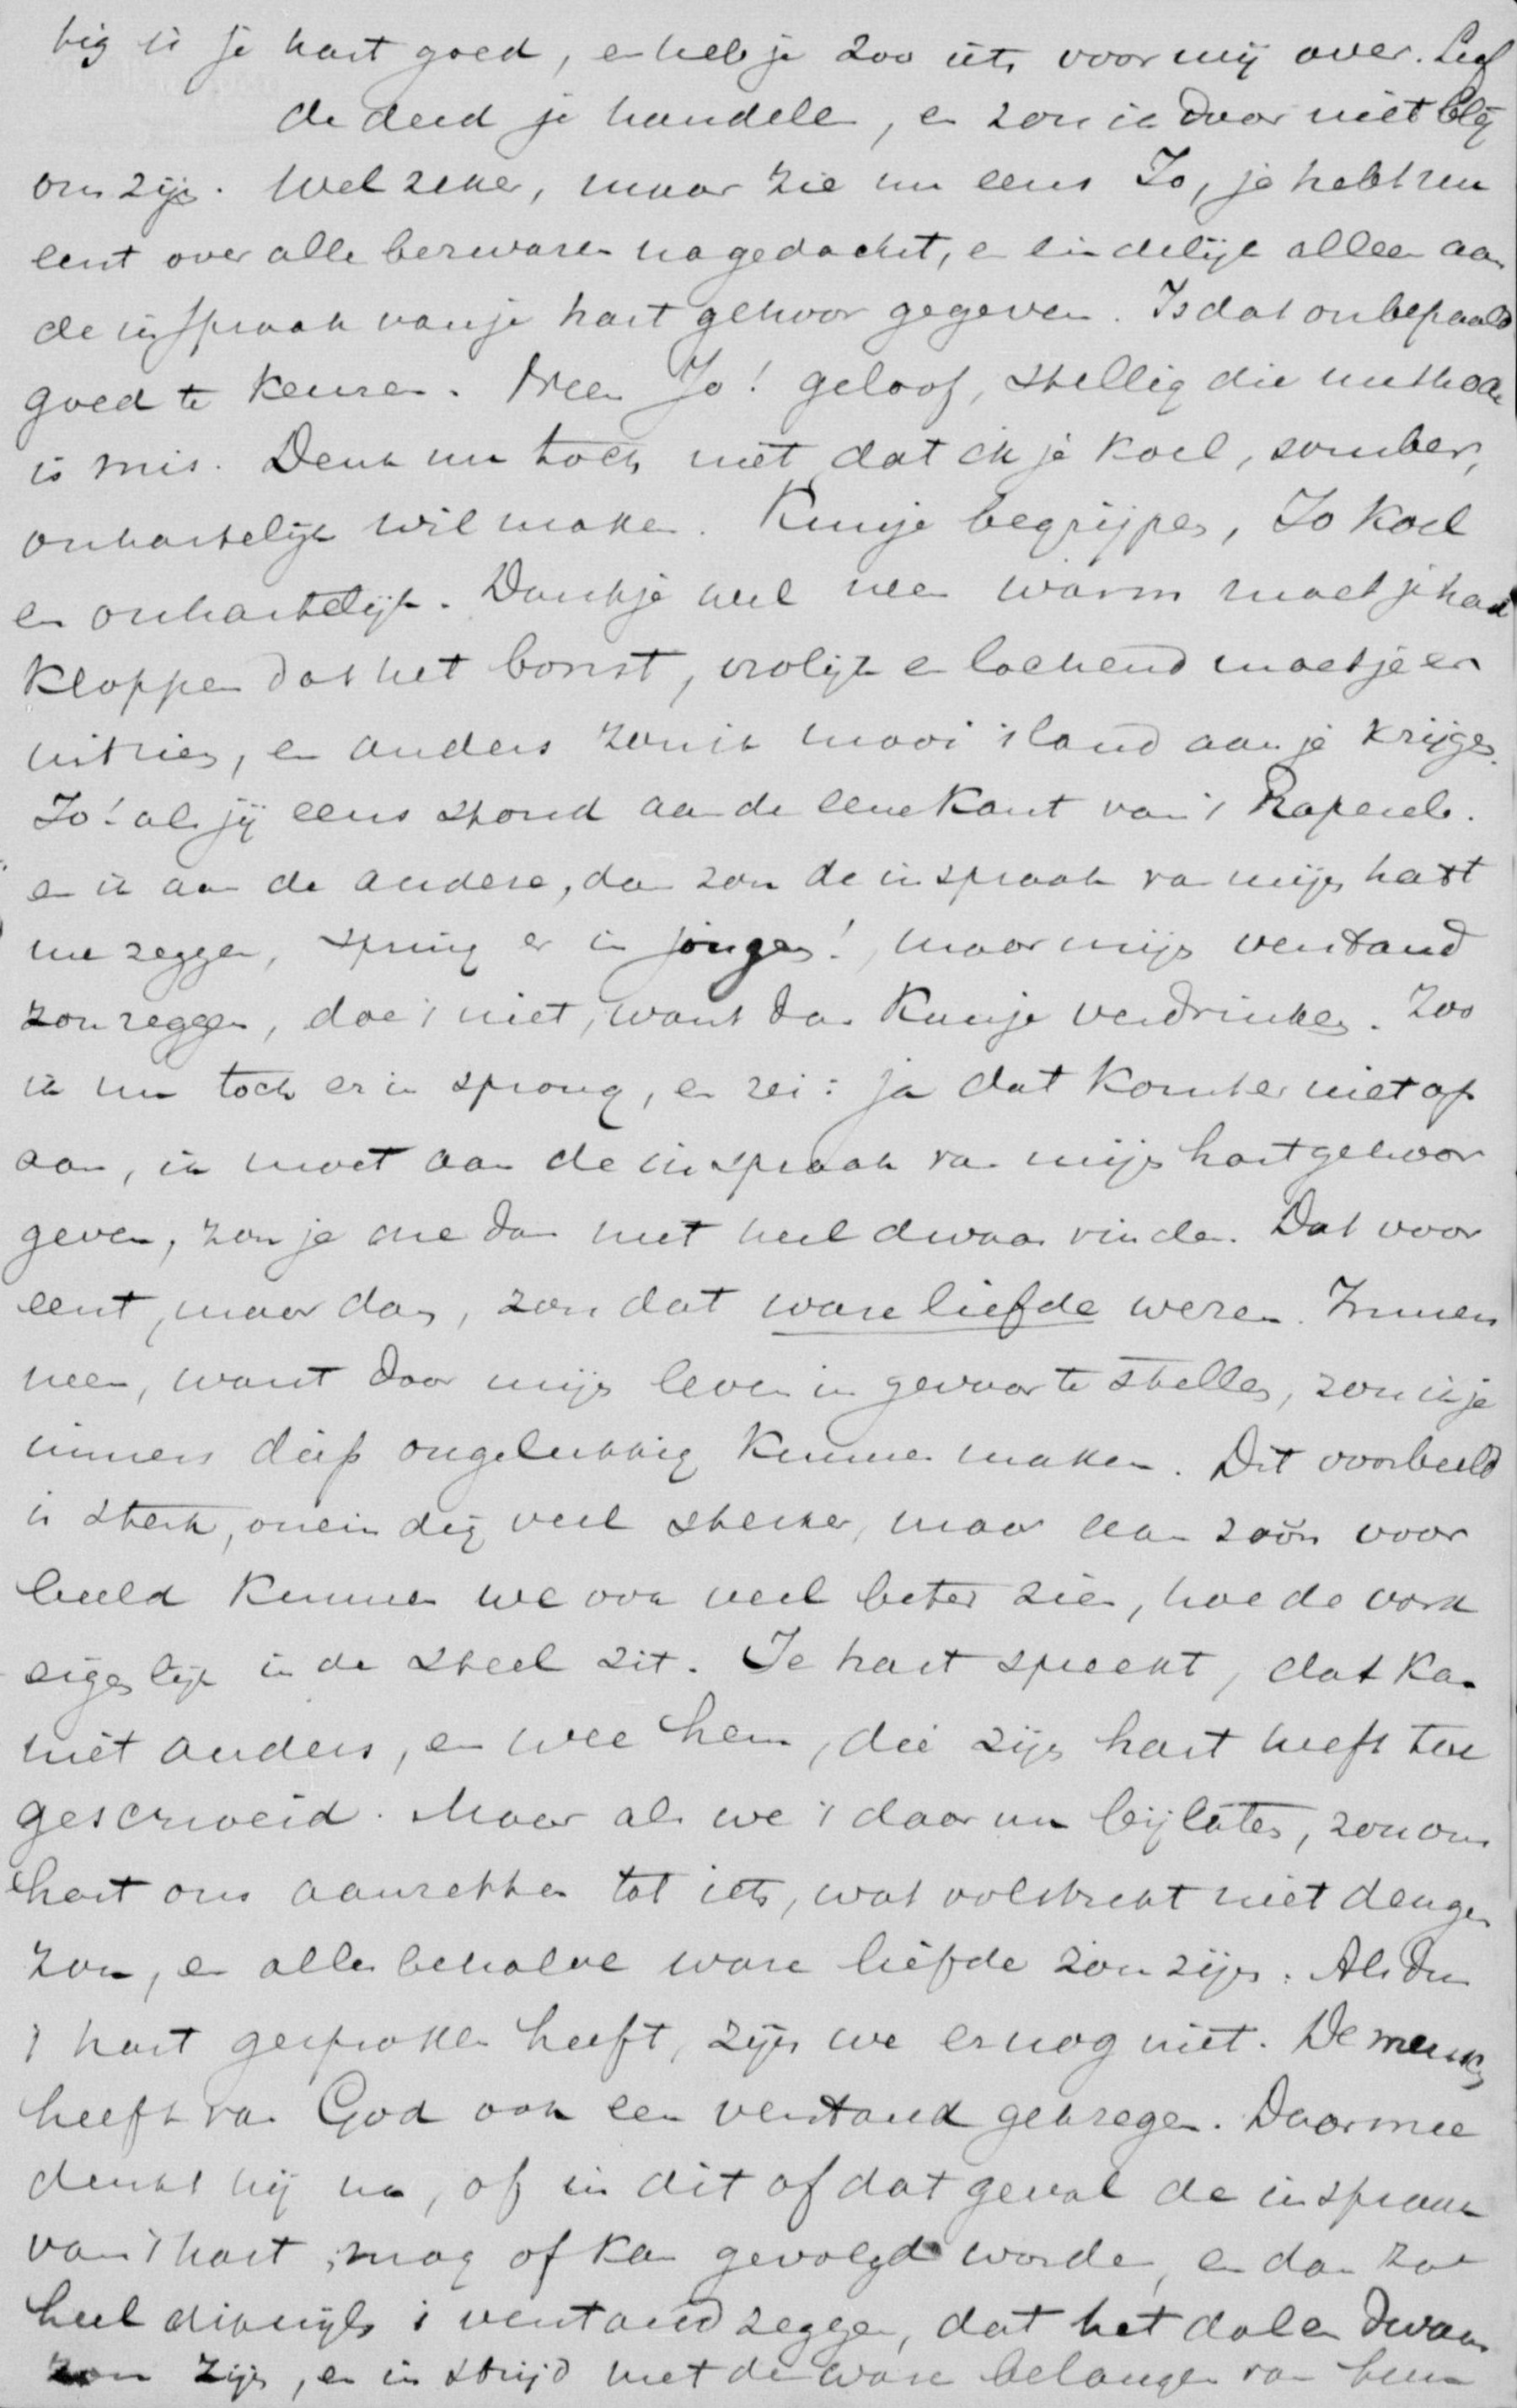 tig is je hart goed, en heb je zoo iets voor mij over. Lief
de deed je handelen, en zou ik daar niet blij
om zijn. Wel zeker, maar zie nu eens Jo, je hebt nu
eerst over alle bezwaren nagedacht, en eindelijk alleen aan
de inspraak van je hart gehoor gegeven. Is dat onbepaald
goed te keuren. Neen Jo! geloof, stellig die methode
is mis. Denk nu toch niet dat ik je koel, somber,
onhartelijk wil maken. Kun je begrijpen, Jo koel
en onhartelijk. Dank je wel neen warm moet je hart
kloppen dat het bonst, vrolijk en lachend moet je er
uitzien, en anders zou ik mooi 't land aan je krijgen.
Jo! als jij eens stond aan de eene kant van 't Rapenb.
en ik aan de andere, dan zou de inspraak van mijn hart
me zeggen, spring er in jongen!, maar mijn verstand
zou zeggen, doe 't niet, want dan kun je verdrinken. Zoo
ik nu toch er in sprong, en zei: ja dat komt er niet op
aan, ik moet aan de inspraak van mijn hart gehoor
geven, zou je me dan niet heel dwaas vinden. Dat voor
eerst, maar dan, zou dat ware liefde wezen. Immers
neen, want door mijn leven in gevaar te stellen, zou ik je
immers diep ongelukkig kunnen maken. Dit voorbeeld
is sterk, oneindig veel sterker, maar aan zoo'n voor
beeld kunnen we ook veel beter zien, hoe de vork
eigenlijk in de steel zit. Je hart spreekt, dat kan
niet anders, en wee hem, die zijn hart heeft toe
geschroeid. Maar als we 't daar nu bij laten, zou ons
hart ons aanzetten tot iets, wat volstrekt niet deugen
zou, en alles behalve ware liefde zou zijn. Als dus
't hart gesproken heeft, zijn we er nog niet. De mensch
heeft van God ook een verstand gekregen. Daarmee
denkt hij na, of in dit of dat geval de inspraak
van 't hart, mag of kan gevolgd worden, en dan zal
heel dikwijls 't verstand zeggen, dat het dolen dwaas
zou zijn, en in strijd met de ware belangen van hem